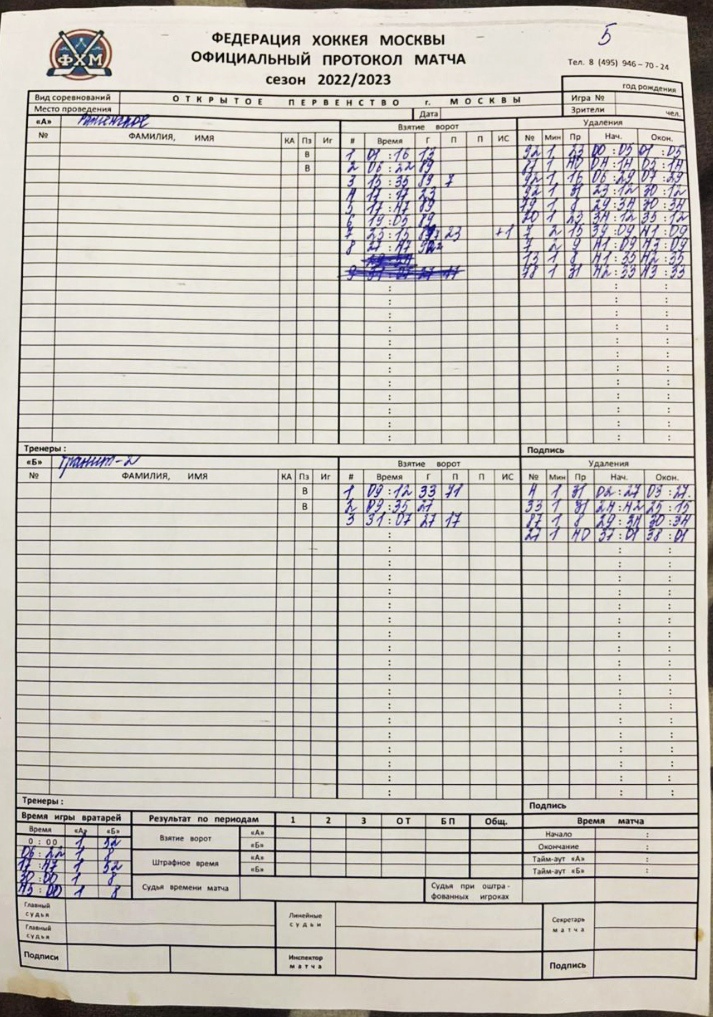 ФХМ
ФЕДЕРАЦИЯ ХОККЕЯ МОСКВЫ
ОФИЦИАЛЬНЫЙ ПРОТОКОЛ МАТЧА
сезон 2022/2023
5
Тел. 8 (495) 946-70-24
год рождения
Вид соревнований ОТКРЫТОЕ ПЕРВЕНСТВО г. МОСКВЫ Игра №
Место проведения Дата Зрители чел.
«А» Раменское Взятие ворот Удаления
№ ФАМИЛИЯ, ИМЯ КА Пз Иг # Время Г П П ИС № Мин Пр Нач. Окон.
В 1 01:16 13 92 1 23 00:05 01:05
В 2 06:22 89 1 40 04:14 05:14
3 15:35 89 7 92 1 16 06:29 07:29
4 17:17 23 1 31 29:12 30:12
5 17:47 89 1 8 29:34 30:34
6 19:05 89 20 1 23 34:12 35:12
7 25:15 23 +1 7 2 15 39:09 41:09
8 27:47 7 2 9 41:09 43:09
13 1 8 41:35 42:35
78 1 31 42:33 43:33
Тренеры : Подпись
«Б» Гранит-2 Взятие ворот Удаления
№ ФАМИЛИЯ, ИМЯ КА Пз Иг # Время Г П П ИС № Мин Пр Нач. Окон.
В 1 09:12 33 71 4 1 31 02:27 03:27
В 2 09:35 27 33 1 31 24:42 25:15
3 31:07 27 17 87 1 8 29:34 30:34
27 1 40 37:01 38:01
Тренеры : Подпись
Время игры вратарей Результат по периодам 1 2 3 ОТ БП Общ. Время матча
Время «А» «Б» Взятие ворот «А» Начало :
0:00 1 32 «Б» Окончание :
06:22 1 8 Штрафное время «А» Тайм-аут «А» :
17:47 1 32 «Б» Тайм-аут «Б» :
30:00 1 8 Судья времени матча Судья при оштра-
45:00 1 8 фованных игроках
Главный судья Линейные судьи Секретарь матча
Главный судья
Подписи Инспектор матча Подпись